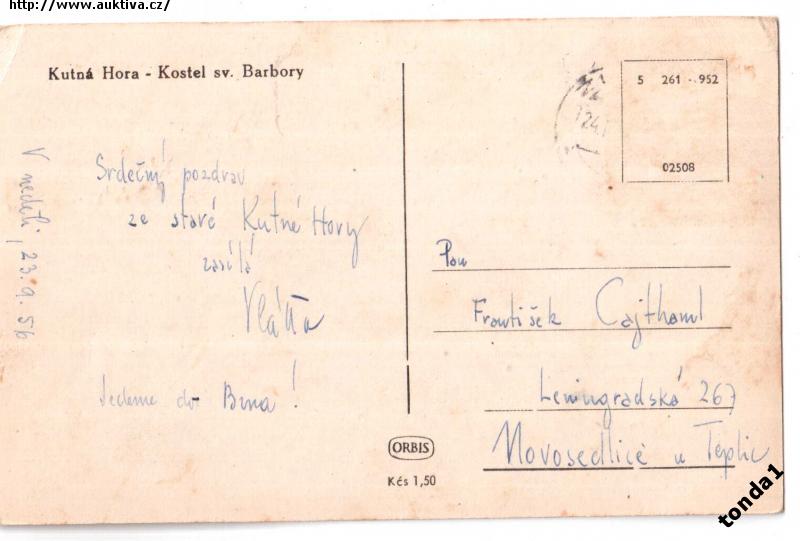 http://www.auktiva.cz/
Kutná Hora - Kostel sv. Barbory
V neděli, 23.9.56
Srdečný pozdrav
ze staré Kutné Hory
zasílá
Vláďa
Jedeme do Brna!
5 261 - 952
02508
24.
Pan
František Cajthaml
Leningradská 267
Novosedlice u Teplic
ORBIS
Kčs 1,50
tonda1